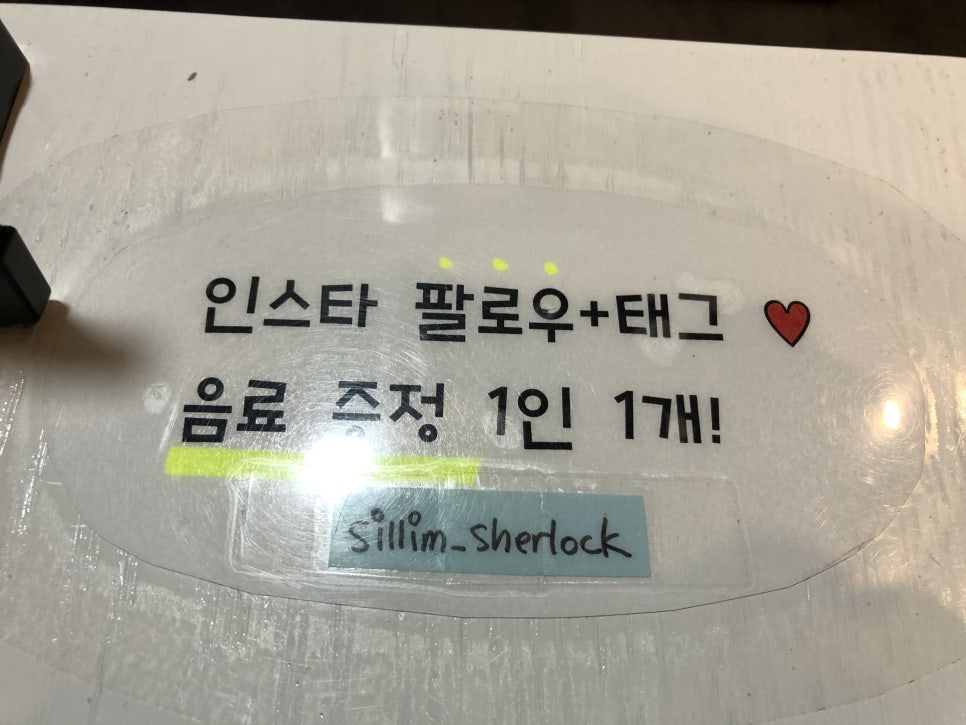 인스타 팔로우+태그 ♥
음료 증정 1인 1개!
sillim_sherlock